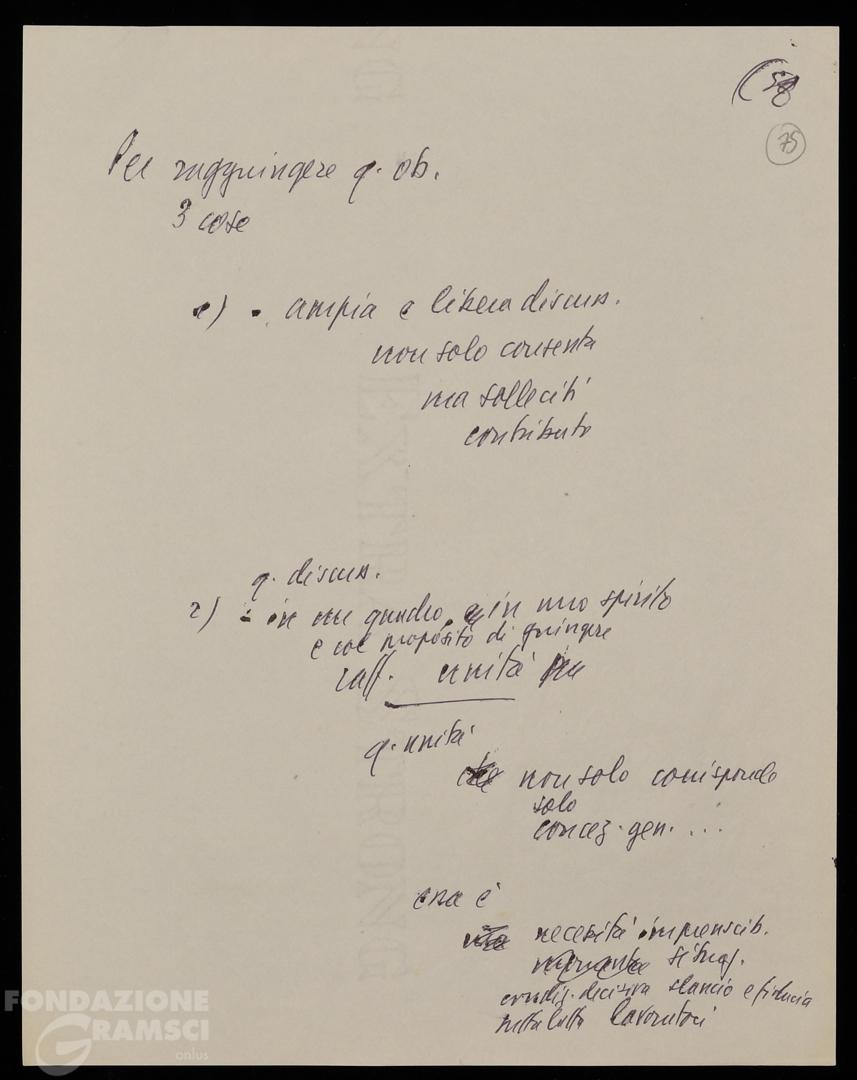 (58
75
Per raggiungere q. ob.
3 cose
1) . ampia e libera discuss.
non solo consenta
ma solleciti
contributo
q. discuss.
2) - in un quadro, e in uno spirito
e col proposito di giungere
raff. unità
q. unità
che non solo corrisponde
solo
concez. gen. ...
essa è
necessità imprescib.
situaz.
condiz. decisiva slancio e fiducia
nella lotta lavoratori
FONDAZIONE
GRAMSCI
onlus